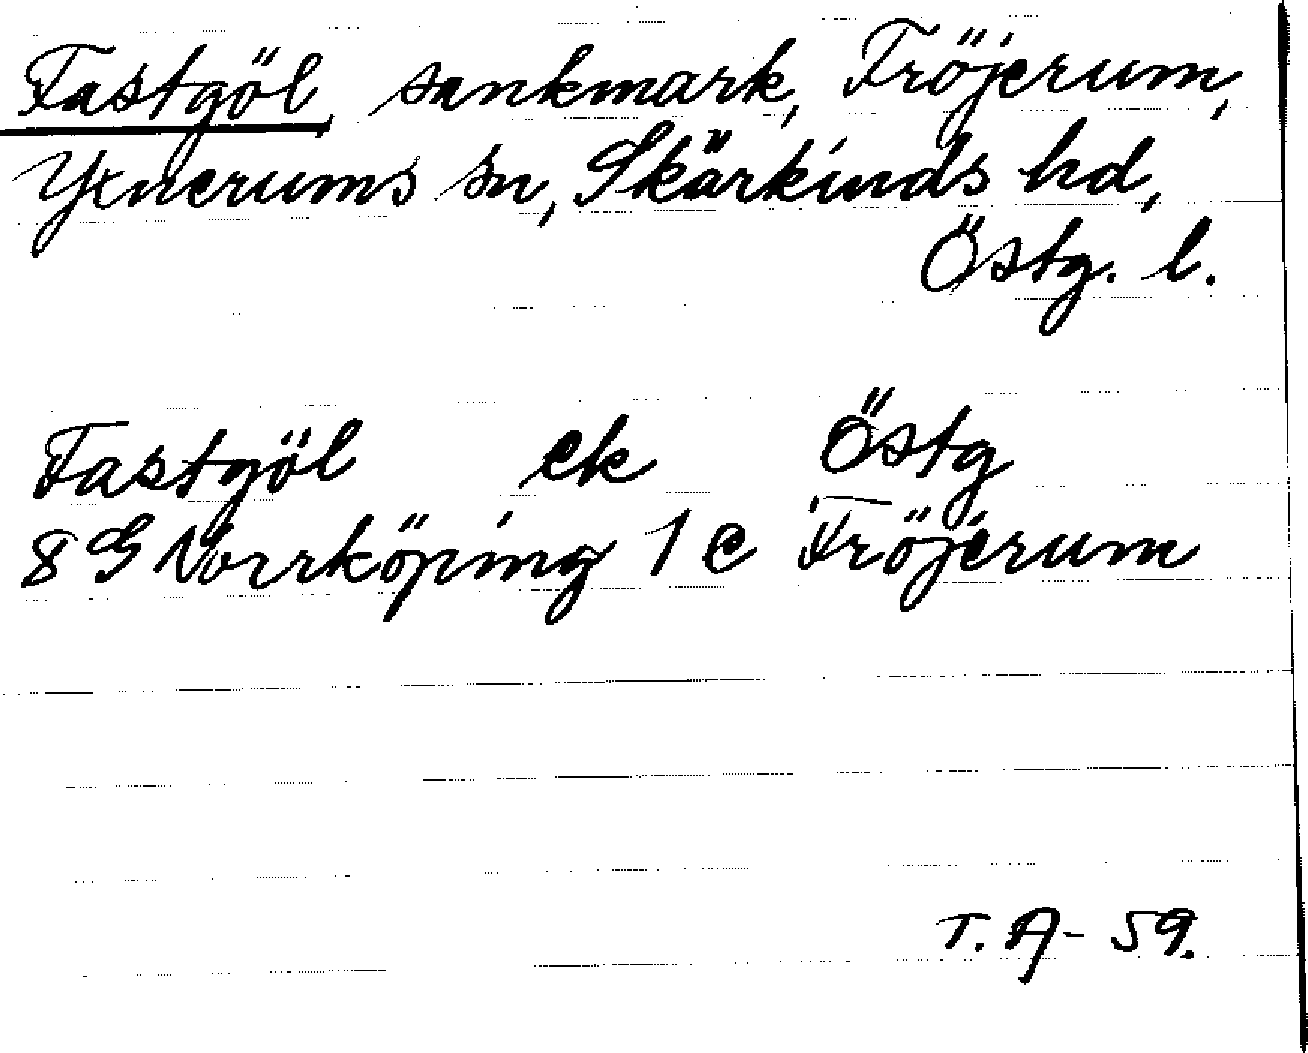 Fastgöl, sankmark, Fröjerum,
Yxnerums sn, Skärkinds hd,
Östg. l.
Fastgöl ek Östg
8 G Norrköping 1 e Fröjerum
T. A- 59.